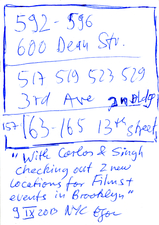 592-596
600 Dean Str.
517 519 523 529
3rd Ave 2nd Bldg
157 163-165 13th street
"With Carlos & Singh
checking out 2 new
locations for Filmst
events in Brooklyn"
9 IX 2013 NYC